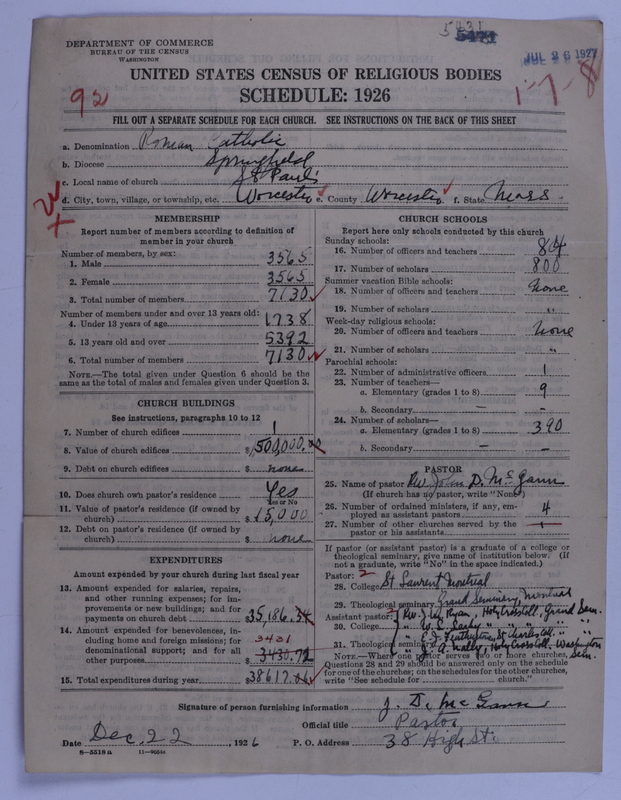 5431
5471
DEPARTMENT OF COMMERCE
BUREAU OF THE CENSUS
WASHINGTON
JUL 26 1927
UNITED STATES CENSUS OF RELIGIOUS BODIES
SCHEDULE: 1926
92
1-7-8
FILL OUT A SEPARATE SCHEDULE FOR EACH CHURCH. SEE INSTRUCTIONS ON THE BACK OF THIS SHEET
a. Denomination Roman Catholic
b. Diocese Springfield
c. Local name of church St Paul's
d. City, town, village, or township, etc. Worcester e. County Worcester f. State Mass.
MEMBERSHIP
Report number of members according to definition of member in your church
Number of members, by sex:
1. Male 3565
2. Female 3565
3. Total number of members 7130
Number of members under and over 13 years old:
4. Under 13 years of age 1738
5. 13 years old and over 5392
6. Total number of members 7130
NOTE.—The total given under Question 6 should be the same as the total of males and females given under Question 3.
CHURCH BUILDINGS
See instructions, paragraphs 10 to 12
7. Number of church edifices 1
8. Value of church edifices $ 500,000.00
9. Debt on church edifices $ none
10. Does church own pastor's residence? Yes
Yes or No
11. Value of pastor's residence (if owned by church) $ 15,000
12. Debt on pastor's residence (if owned by church) $ none
EXPENDITURES
Amount expended by your church during last fiscal year
13. Amount expended for salaries, repairs, and other running expenses; for improvements or new buildings; and for payments on church debt $35,186.34
14. Amount expended for benevolences, including home and foreign missions; for denominational support; and for all other purposes 3431
$ 3430.72
15. Total expenditures during year $38617.06
CHURCH SCHOOLS
Report here only schools conducted by this church
Sunday schools:
16. Number of officers and teachers 84
17. Number of scholars 800
Summer vacation Bible schools:
18. Number of officers and teachers None
19. Number of scholars "
Week-day religious schools:
20. Number of officers and teachers None
21. Number of scholars "
Parochial schools:
22. Number of administrative officers 1
23. Number of teachers—
a. Elementary (grades 1 to 8) 9
b. Secondary — -
24. Number of scholars—
a. Elementary (grades 1 to 8) 390
b. Secondary — —
PASTOR
25. Name of pastor Rev. John D. McGann
(If church has no pastor, write "None")
26. Number of ordained ministers, if any, employed as assistant pastors 4
27. Number of other churches served by the pastor or his assistants 1
If pastor (or assistant pastor) is a graduate of a college or theological seminary, give name of institution below. (If not a graduate, write "No" in the space indicated.)
Pastor: 2
28. College St Laurent Montreal
29. Theological seminary Grand Seminary, Montreal
Assistant pastor: Rev. Ryan, Holy Cross Coll, Grand Sem.
30. College " " " " "
31. Theological seminary St Charles Coll. " "
Nally, Holy Cross Coll. Washington Sem.
NOTE.—Where one pastor serves two or more churches, Questions 28 and 29 should be answered only on the schedule for one of the churches; on the schedules for the other churches, write "See schedule for church."
Signature of person furnishing information J. D. McGann
Official title Pastor
Date Dec. 22, 1926 P. O. Address 38 High St.
8—5518a